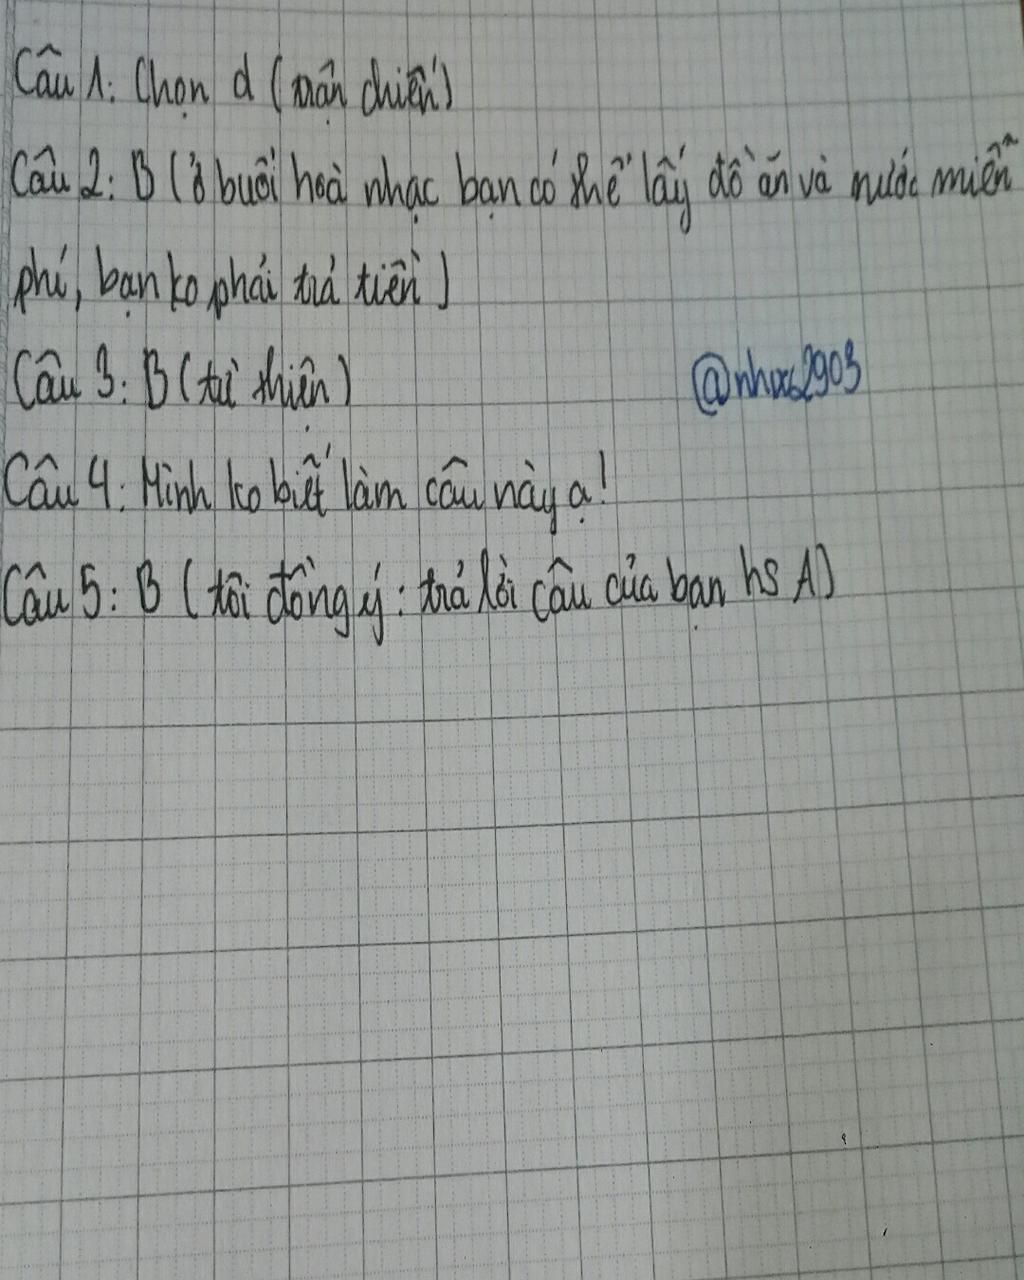 Câu 1: Chọn d (trận chiến)
Câu 2: B (ở buổi hoà nhạc bạn có thể lấy đồ ăn và nước miễn
phí, bạn ko phải trả tiền)
Câu 3: B (từ thiện)
@nhux2903
Câu 4: Mình ko biết làm câu này ạ!
Câu 5: B (tôi đồng ý: trả lời câu của bạn hs A)